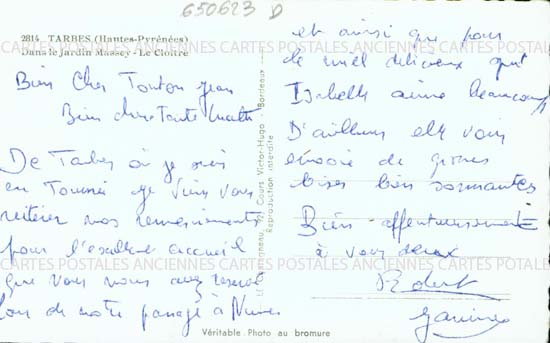 650623 D
2814 TARBES (Hautes-Pyrénées)
Dans le Jardin Massey - Le Cloître
Bien Cher Tonton Jean
Bien chère Tante
De Tarbes où je suis
en Tournée je viens vous
réitérer nos remerciements
pour l'excellent accueil
que vous nous avez réservé
lors de notre passage à
et ainsi que pour
le miel délicieux qu'
Isabelle aime beaucoup
D'ailleurs elle vous
envoie de grosses
bises bien sonnantes
Bien affectueusement
à vous deux
Robert
Janine
Cours Victor-Hugo - Bordeaux
Reproduction interdite
Véritable Photo au bromure
CARTES POSTALES ANCIENNES CARTES POSTALES ANCIENNES CARTES POSTALES